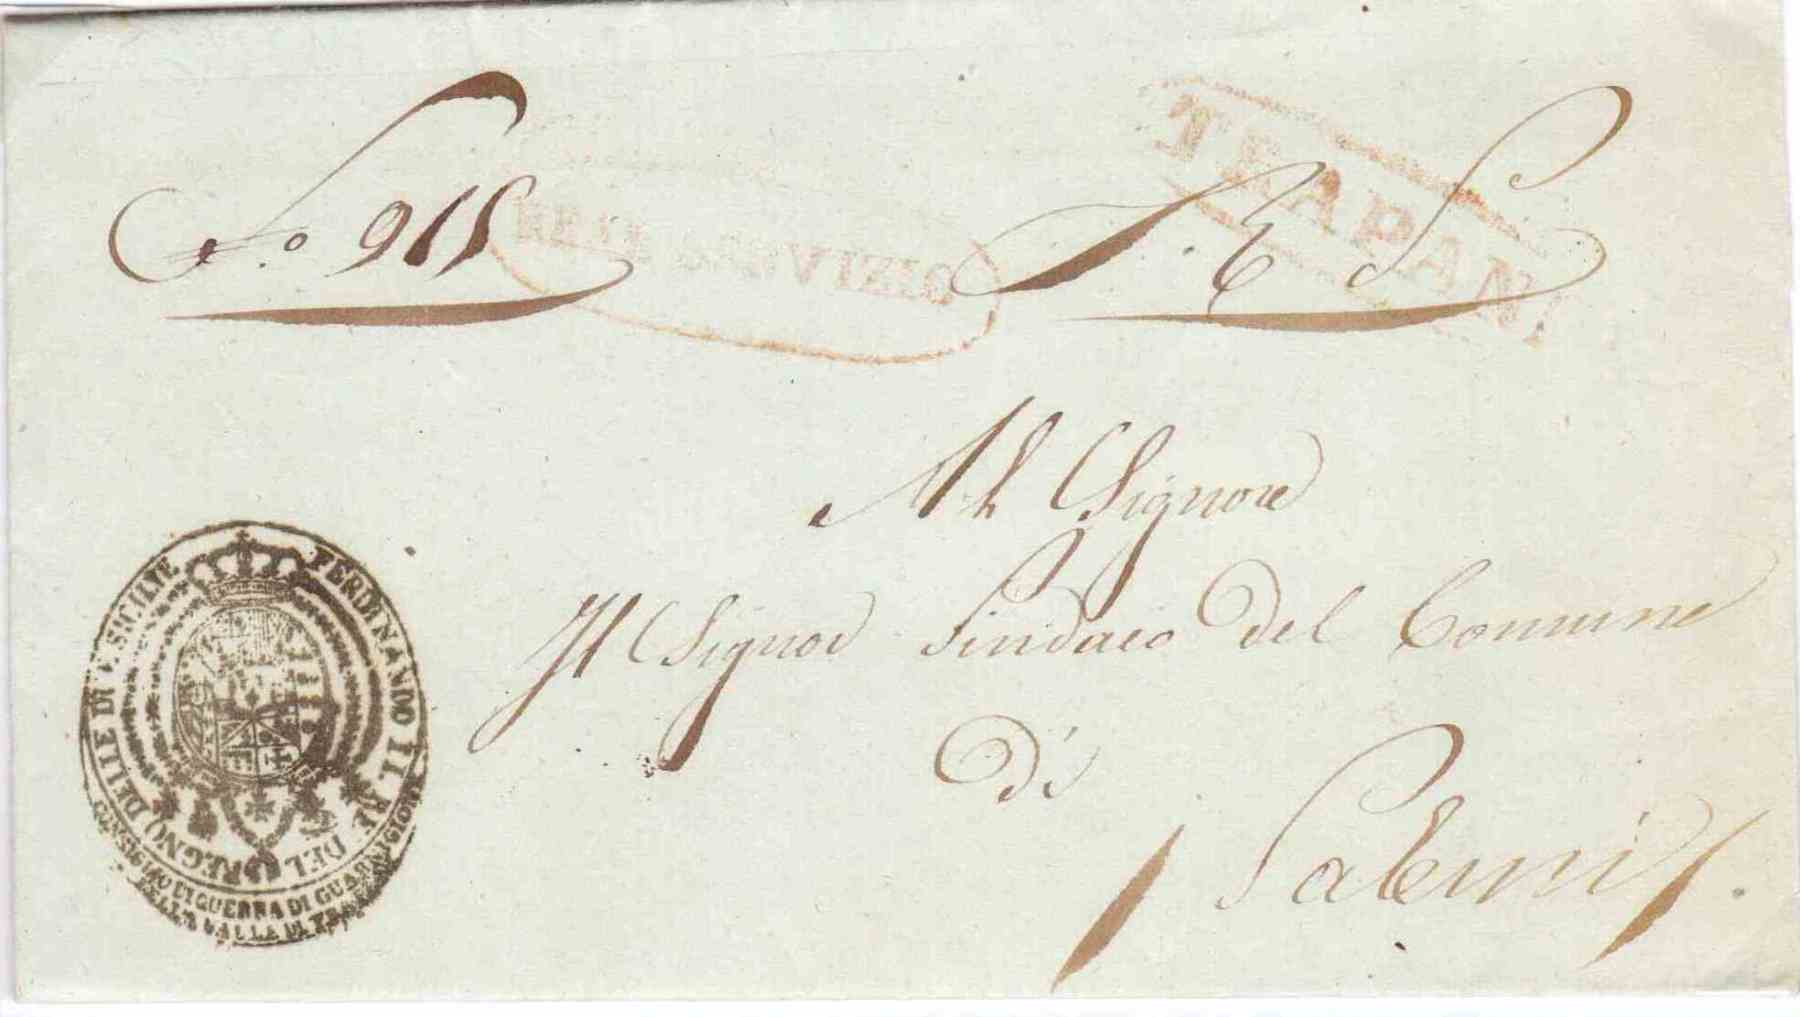 No. 915
REAL SERVIZIO
R. S.
TRAPANI
Al Signore
Il Signor Sindaco del Comune
di
Salemi
FERDINANDO II. RE DEL REGNO DELLE DUE SICILIE
CONSIGLIO DI GUERRA DI GUARNIGIONE
DELLA VALLE DI TRAPANI